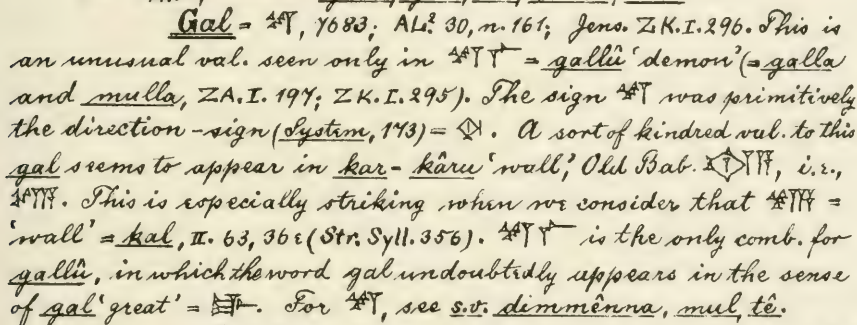 Gal = 𒋼, 7683; AL². 30, n. 161; Jens. Z.K. I. 296. This is
an unusual val. seen only in 𒋼𒇲 = gallû ‘demon’ (= galla
and mulla, ZA. I. 197; ZK. I. 295). The sign 𒋼 was primitively
the direction-sign (System, 173) = . A sort of kindred val. to this
gal seems to appear in kar - kâru ‘wall’, Old Bab. , i.e.,
𒋼𒀀. This is especially striking when we consider that 𒋼𒀀 =
‘wall’ = kal, II. 63, 36e (Str. Syll. 356). 𒋼𒇲 is the only comb. for
gallû, in which the word gal undoubtedly appears in the sense
of gal ‘great’ = 𒃲. For 𒋼, see s.v. dimmênna, mul, tê.